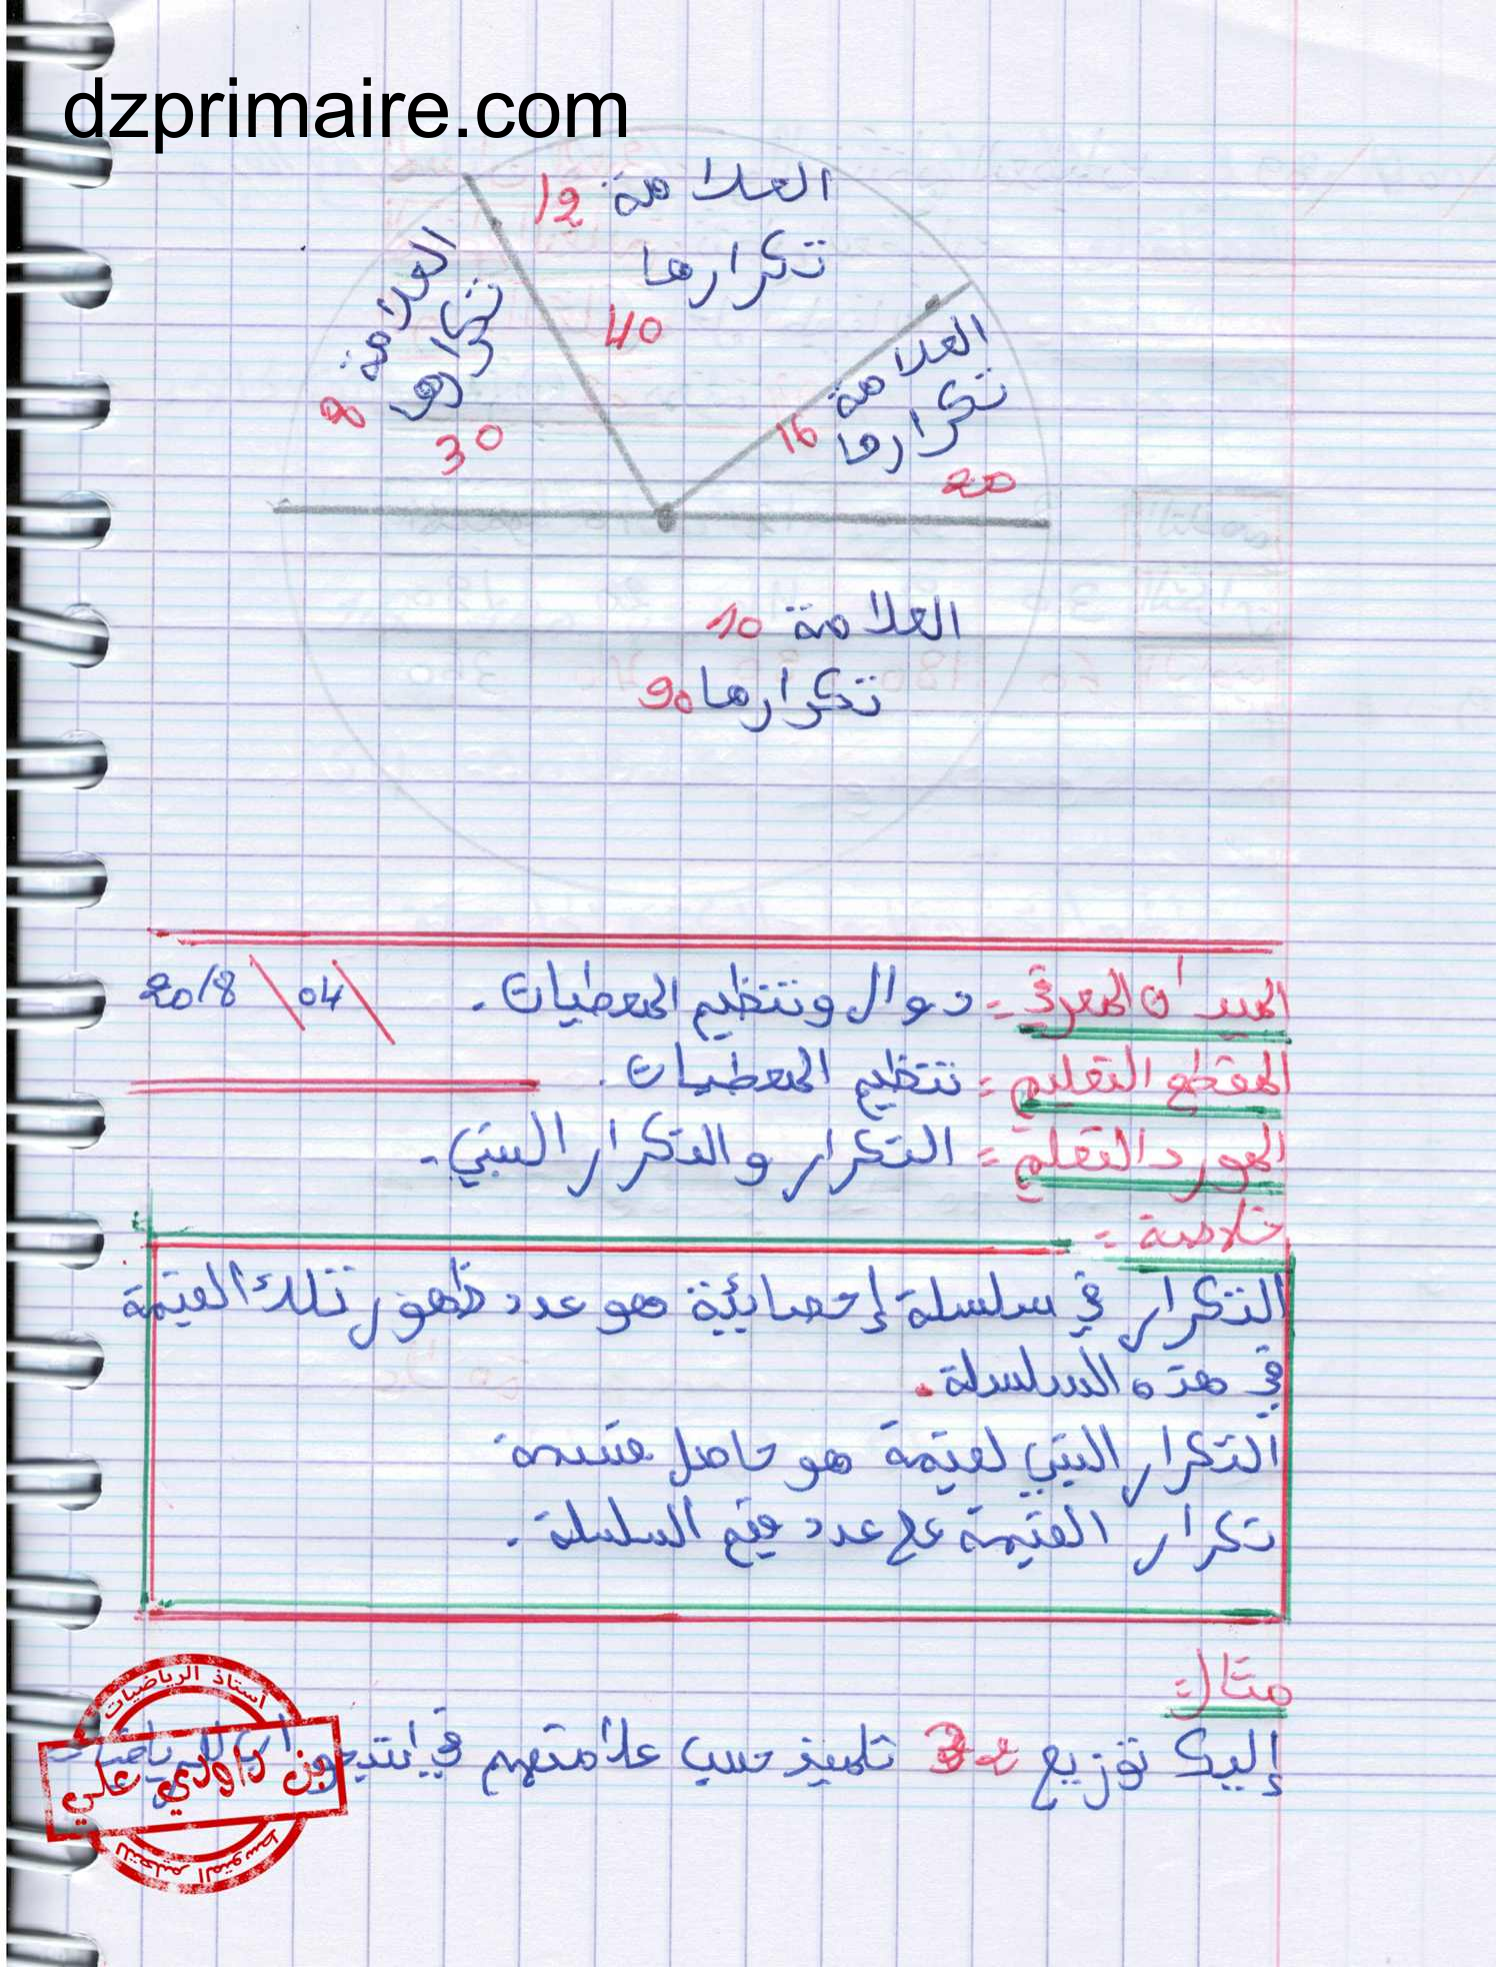 dzprimaire.com
العلامة 12
تكرارها
40
العلامة 8
تكرارها
30
العلامة 16
تكرارها
20
العلامة 10
تكرارها 90
الميدان المعرفي = دوال وتنظيم المعطيات. / 04 / 2018
المقطع التعليمي = تنظيم المعطيات.
المورد التعلمي = التكرار والتكرار النسبي.
خلاصة =
التكرار في سلسلة إحصائية هو عدد ظهور تلك القيمة
في هذه السلسلة.
التكرار النسبي لقيمة هو حاصل قسمة
تكرار القيمة على عدد قيم السلسلة.
مثال =
إليك توزيع 32 تلميذ حسب علامتهم في
أستاذ الرياضيات
بن داودي علي
للتعليم المتوسط